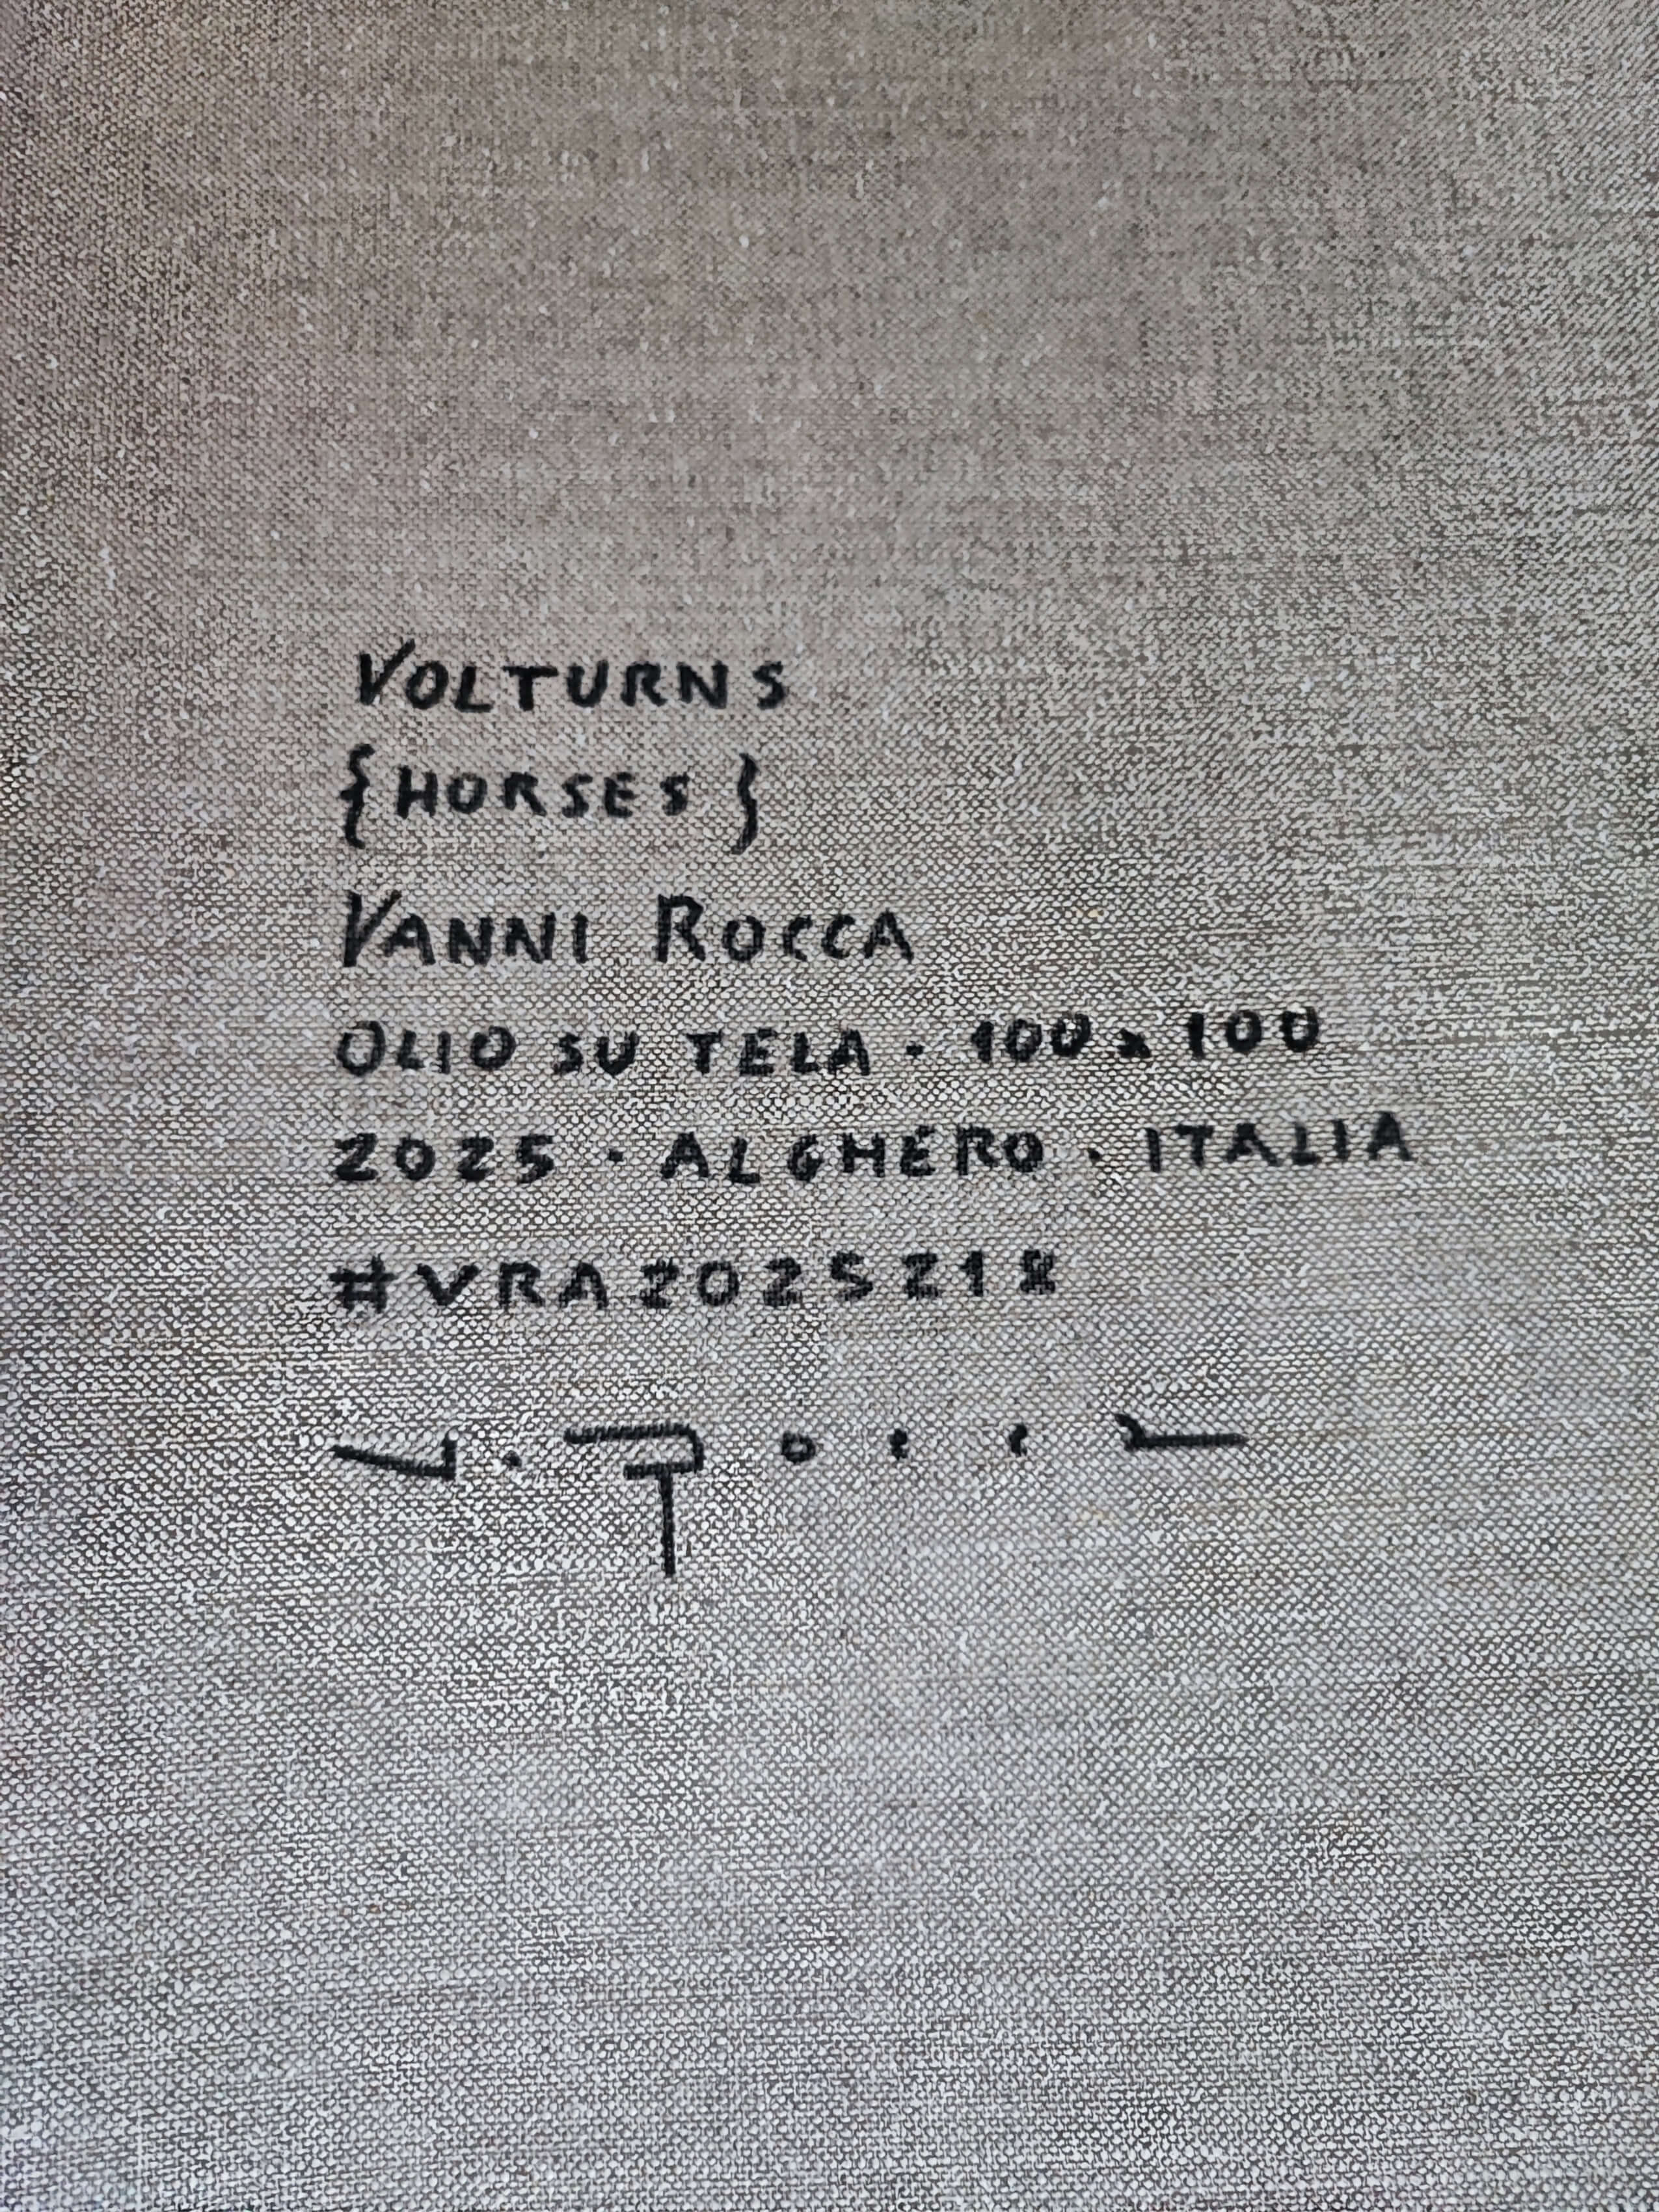 VOLTURNS
{HORSES}
VANNI ROCCA
OLIO SU TELA · 100x100
2025 · ALGHERO · ITALIA
#VRA2025218
V. Rocca